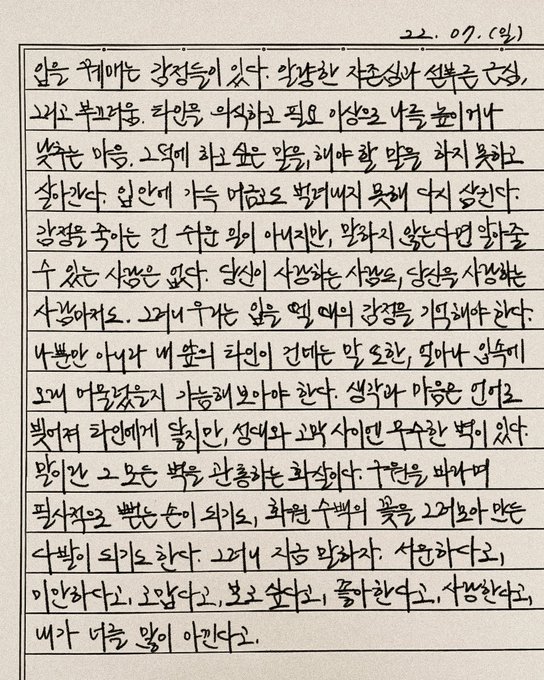 22. 07. (일)
입을 꿰매는 감정들이 있다. 알량한 자존심과 섣부른 근심,
그리고 부끄러움. 타인을 의식하고 필요 이상으로 나를 높이거나
낮추는 마음. 그 덕에 하고 싶은 말을, 해야 할 말을 하지 못하고
살아간다. 입 안에 가득 머금고도 뱉어내지 못해 다시 삼킨다.
감정을 죽이는 건 쉬운 일이 아니지만, 말하지 않는다면 알아줄
수 있는 사람은 없다. 당신이 사랑하는 사람도, 당신을 사랑하는
사람마저도. 그러니 우리는 입을 뗄 때의 감정을 기억해야 한다.
나뿐만 아니라 내 앞의 타인이 건네는 말 또한, 얼마나 입속에
오래 머물렀을지 가늠해 보아야 한다. 생각과 마음은 언어로
빚어져 타인에게 닿지만, 성대와 고막 사이엔 무수한 벽이 있다.
말이란 그 모든 벽을 관통하는 화살이다. 구원을 바라며
필사적으로 뻗는 손이 되기도, 화원 수백의 꽃을 그러모아 만든
다발이 되기도 한다. 그러니 지금 말하자. 서운하다고,
미안하다고, 고맙다고, 보고 싶다고, 좋아한다고, 사랑한다고,
내가 너를 많이 아낀다고.